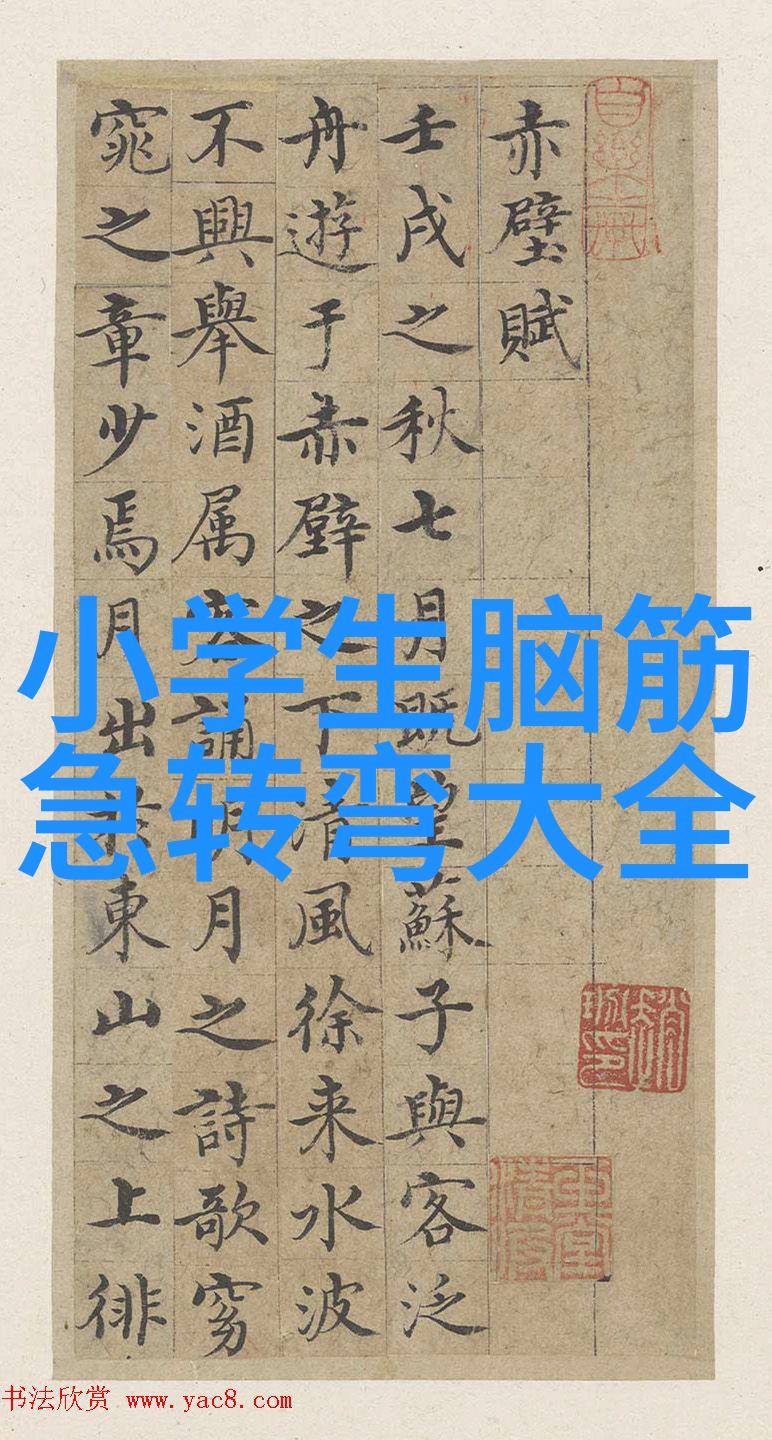 赤壁賦
壬戌之秋七月既望蘇子與客泛
舟遊于赤壁之下清風徐来水波
不興舉酒属客誦明月之詩歌窈
窕之章少焉月出於東山之上徘
小学生脑筋
急转弯大全
书法欣赏 www.yac8.com